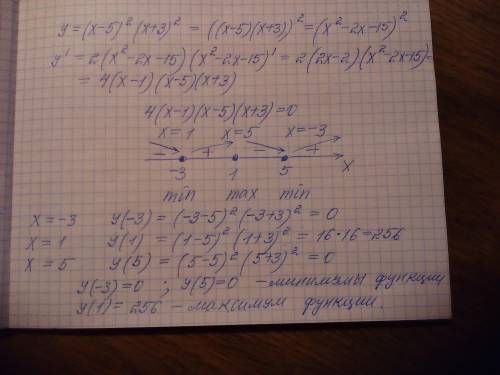 y=(x-5)²(x+3)² = ((x-5)(x+3))²=(x²-2x-15)²
y' = 2(x²-2x-15)(x²-2x-15)' = 2(2x-2)(x²-2x-15)=
= 4(x-1)(x-5)(x+3)
4(x-1)(x-5)(x+3)=0
x=1 x=5 x=-3
- + - +
-3 1 5 x
min max min
x=-3 y(-3)=(-3-5)²(-3+3)² = 0
x=1 y(1) = (1-5)²(1+3)² = 16·16=256
x=5 y(5) = (5-5)²(5+3)² = 0
y(-3)=0 ; y(5)=0 - минимумы функции
y(1)=256 - максимум функции.